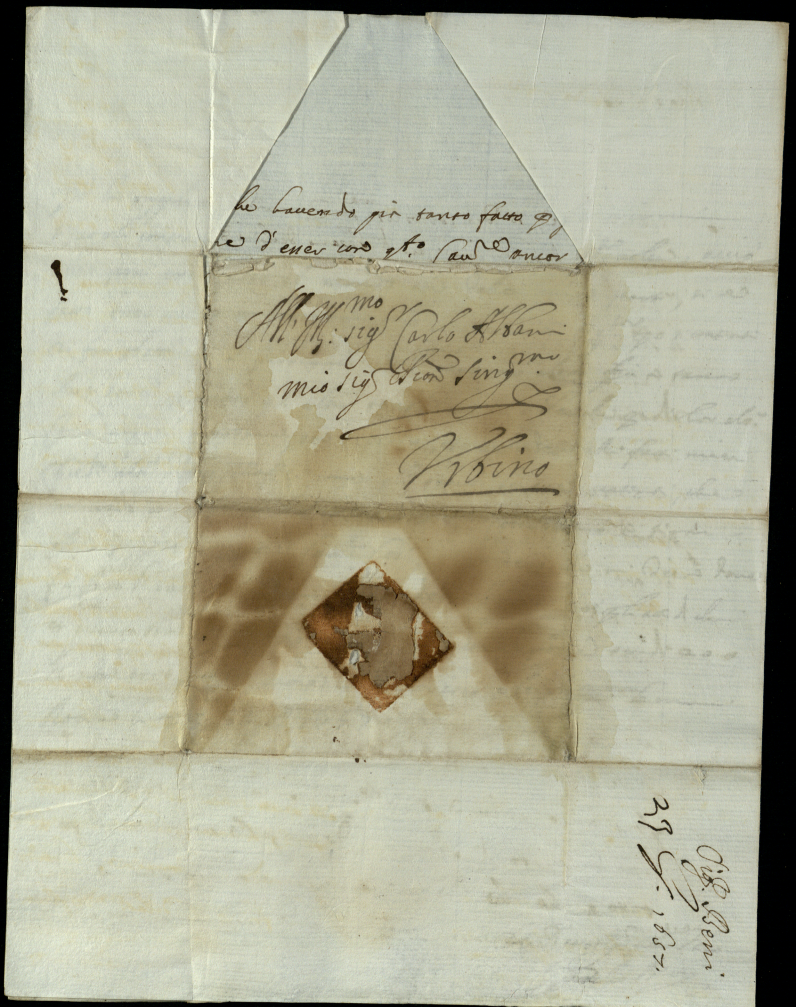 he havendo già tanto fatto
ne d'esser con q.to Cav.re ancor
All' Ill.mo Sig.r Carlo Albani
mio Sig.r e P̃ron Sing.mo
Urbino
Sig.r Beni
27 1657.